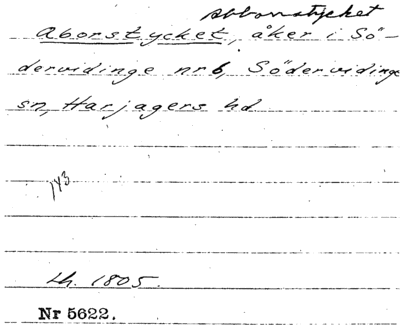 Abbonstycket
Aborstycket, åker i Sö-
dervidinge nr 6, Södervidinge
sn, Harjagers hd
143
Lh. 1805.
Nr 5622.